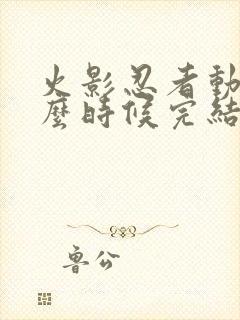 火影忍者動
麼時候完結
魯公